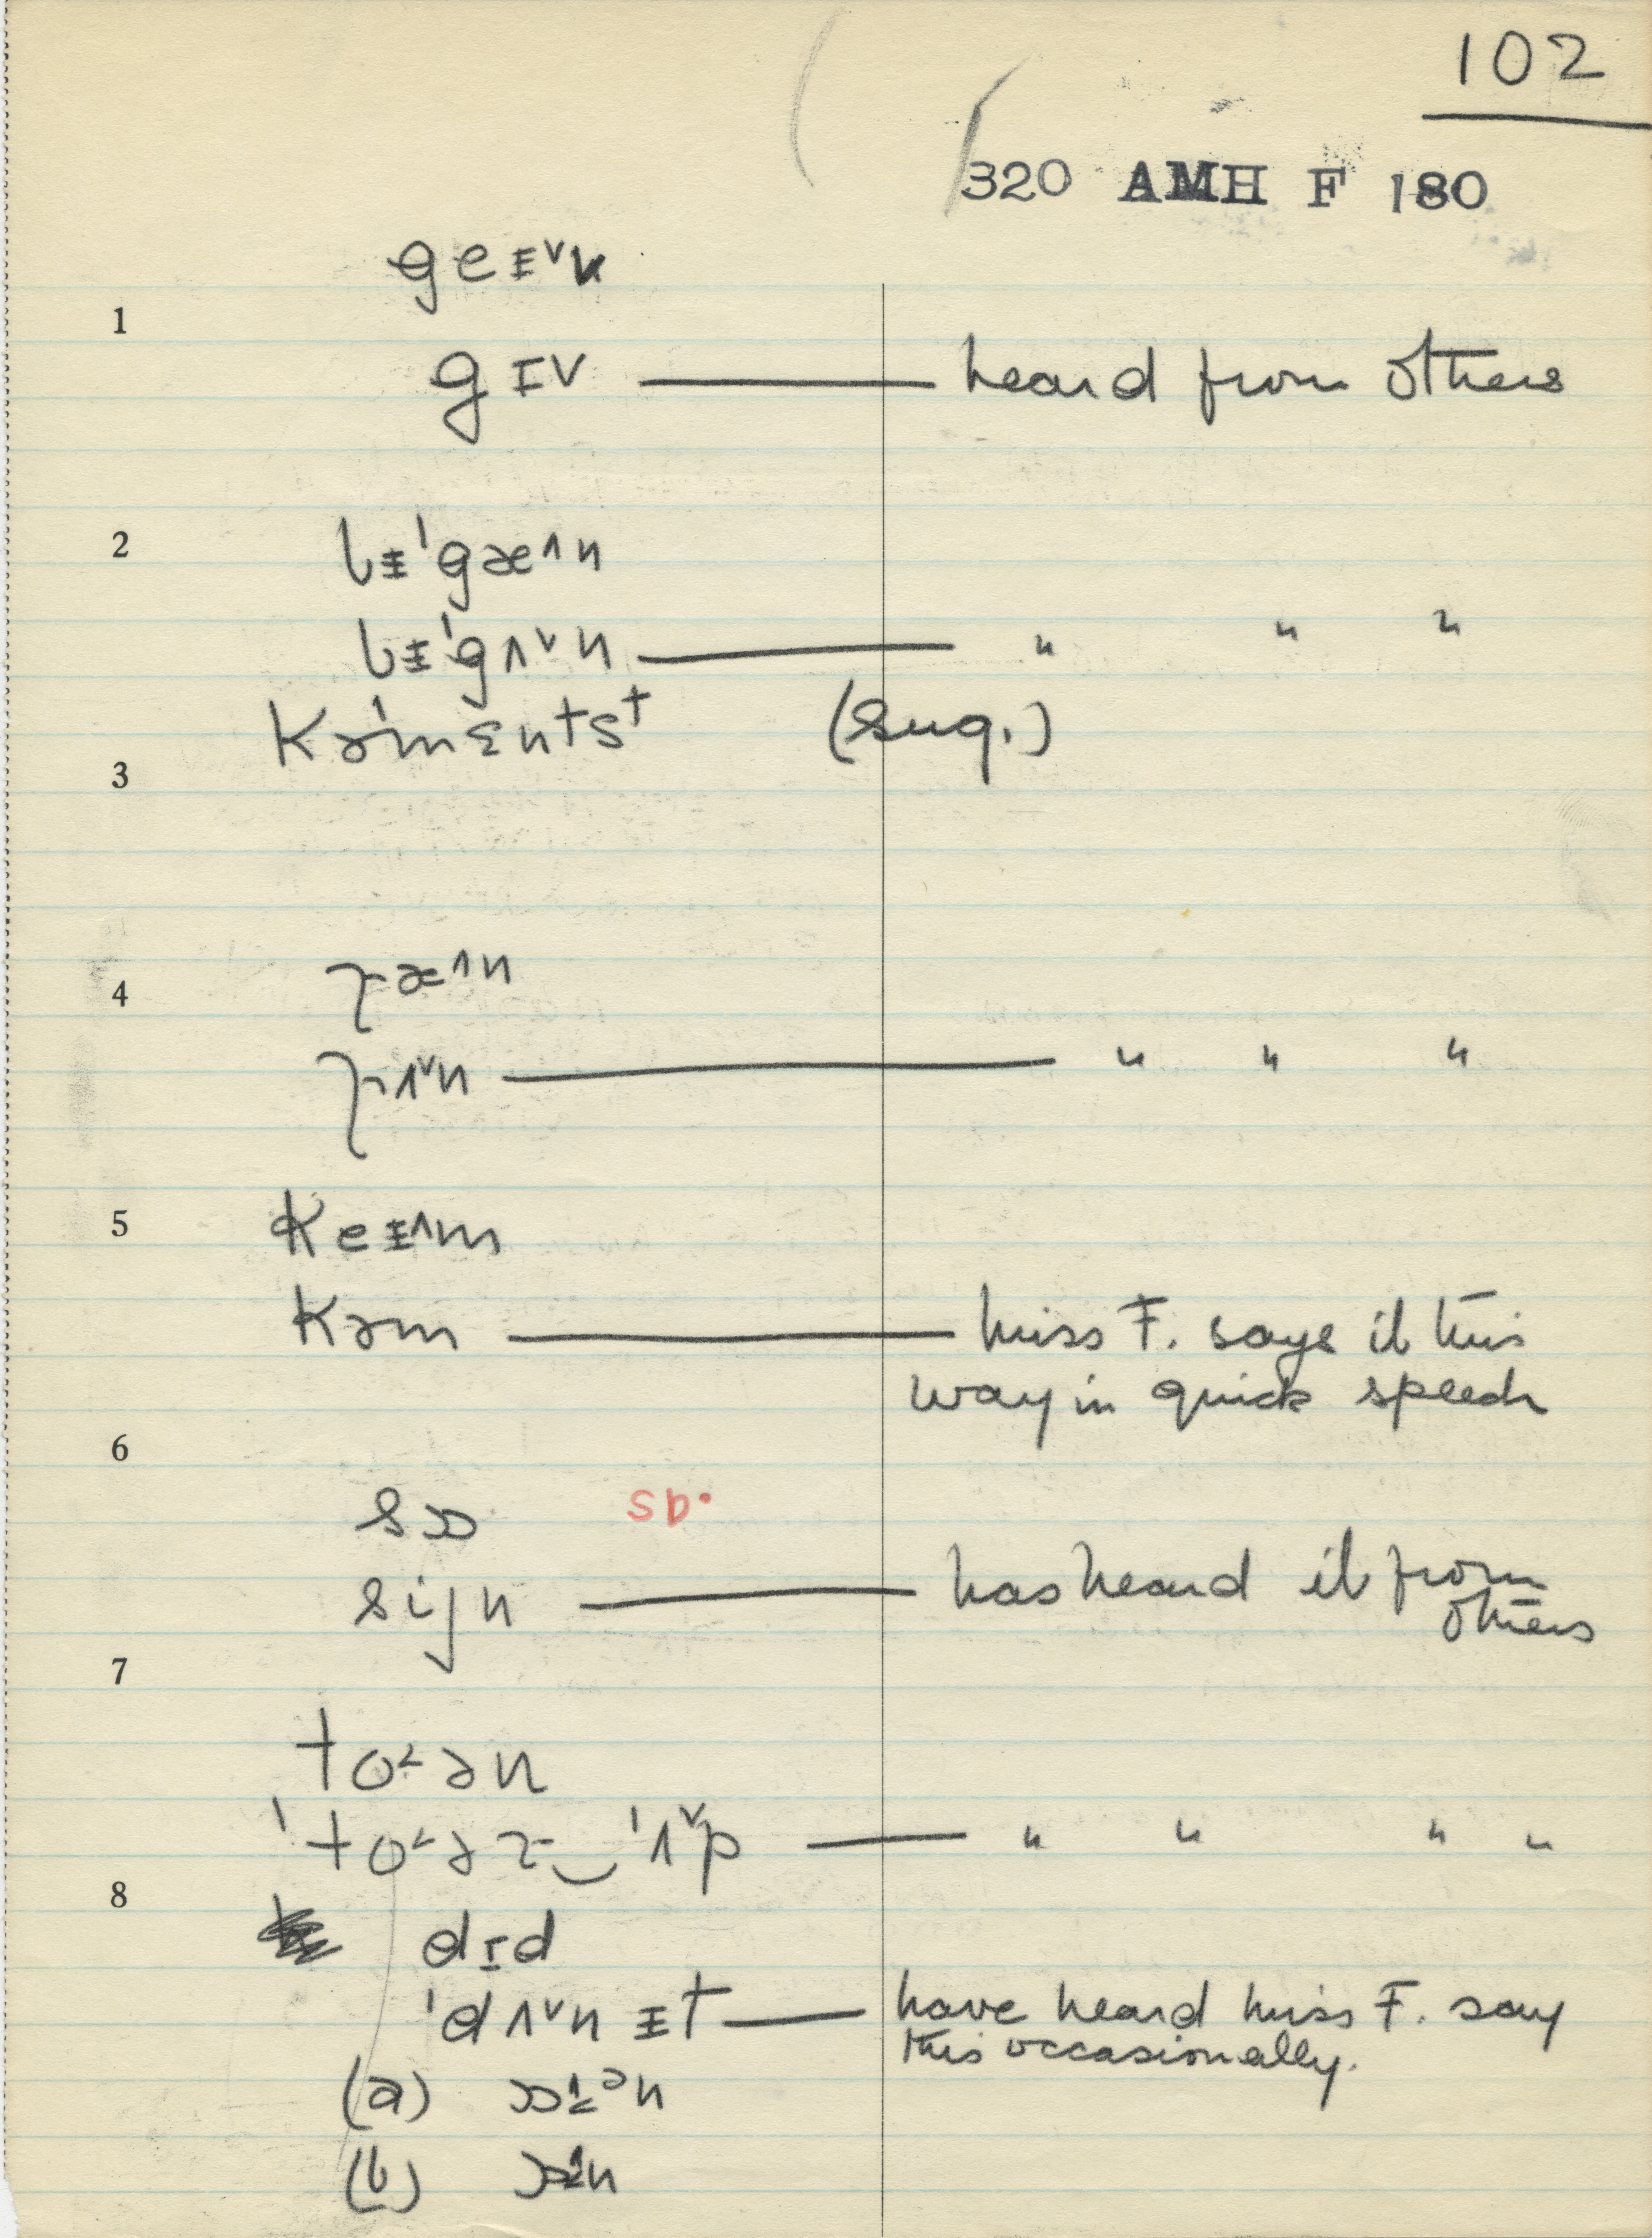 102
320 AMH F 180
geᵻ˅v
1
gɪv — heard from others
2
bᵻˈgæ˄n
bᵻˈgʌ˅n — " " "
kəˈmɛntst (sug.)
3
4
ræ˄n
rʌ˅n — " " "
5
keᵻ˄m
kəm — Miss F. says it this
way in quick speech
6
sɔ sb.
sijn — has heard it from
others
7
to˂ən
ˈto˂ər‿ˈʌ˅p — " " " "
8
dɪd
ˈdʌ˅nᵻt — have heard Miss F. say
this occasionally.
(a)
(b)